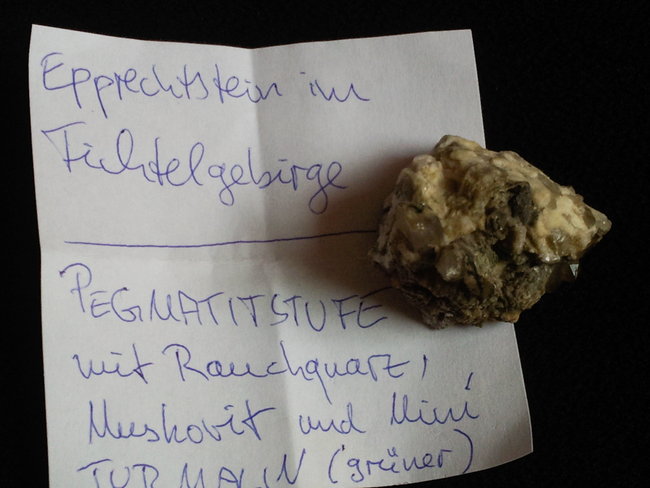 Epprechtstein im
Fichtelgebirge
PEGMATITSTUFE
mit Rauchquarz,
Muskovit und Mini
TURMALIN (grüner)